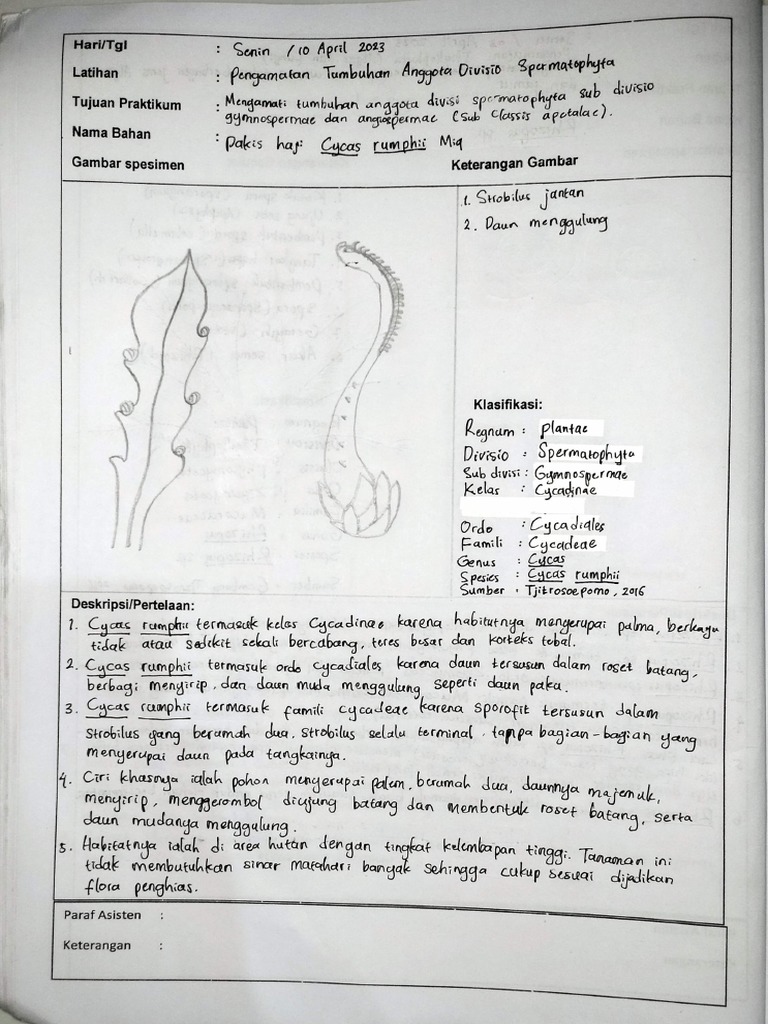 Hari/Tgl : Senin / 10 April 2023
Latihan : Pengamatan Tumbuhan Anggota Divisio Spermatophyta
Tujuan Praktikum : Mengamati tumbuhan anggota divisi spermatophyta sub divisio
gymnospermae dan angiospermae (sub classis apetalae).
Nama Bahan : Pakis haji Cycas rumphii Miq
Gambar spesimen
Keterangan Gambar
1. Strobilus jantan
2. Daun menggulung
Klasifikasi:
Regnum : Plantae
Divisio : Spermatophyta
Sub divisi : Gymnospermae
Kelas : Cycadinae
Ordo : Cycadiales
Famili : Cycadeae
Genus : Cycas
Spesies : Cycas rumphii
Sumber : Tjitrosoepomo, 2016
Deskripsi/Pertelaan:
1. Cycas rumphii termasuk kelas Cycadinae karena habitutnya mengerupai palma, berkayu
tidak atau sedikit sekali bercabang, teres besar dan korteks tebal.
2. Cycas rumphii termasuk ordo cycadiales karena daun tersusun dalam roset batang,
berbagi menyirip, dan daun muda menggulung seperti daun paku.
3. Cycas rumphii termasuk famili cycadeae karena sporofit tersusun dalam
strobilus yang berumah dua. strobilus selalu terminal, tanpa bagian-bagian yang
menyerupai daun pada tangkainya.
4. Ciri khasnya ialah pohon menyerupai palem, berumah dua, daunnya majemuk,
menyirip, menggerombol diujung batang dan membentuk roset batang, serta
daun mudanya menggulung.
5. Habitatnya ialah di area hutan dengan tingkat kelembapan tinggi. Tanaman ini
tidak membutuhkan sinar matahari banyak sehingga cukup sesuai dijadikan
flora penghias.
Paraf Asisten :
Keterangan :